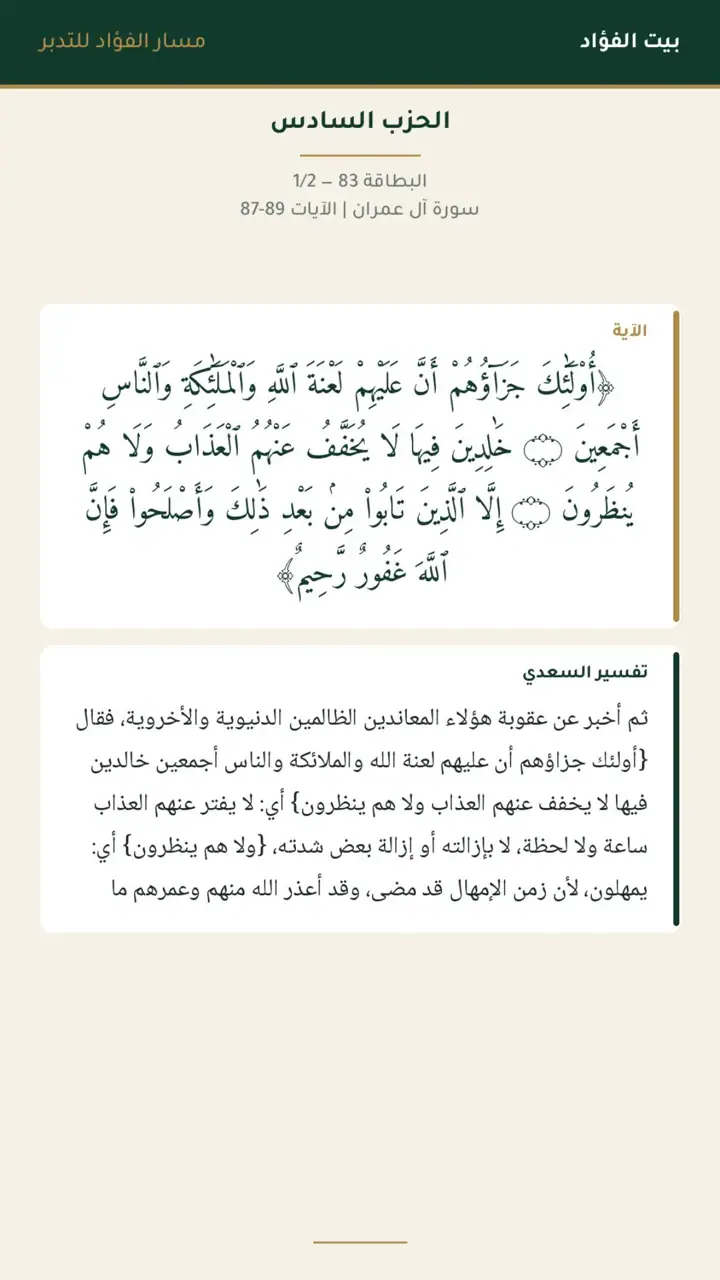 بيت الفؤاد
مسار الفؤاد للتدبر
الحزب السادس
البطاقة 83 – 1/2
سورة آل عمران | الآيات 87-89
الآية
﴿أُوْلَٰٓئِكَ جَزَآؤُهُمْ أَنَّ عَلَيْهِمْ لَعْنَةَ ٱللَّهِ وَٱلْمَلَٰٓئِكَةِ وَٱلنَّاسِ
أَجْمَعِينَ ۝ خَٰلِدِينَ فِيهَا لَا يُخَفَّفُ عَنْهُمُ ٱلْعَذَابُ وَلَا هُمْ
يُنظَرُونَ ۝ إِلَّا ٱلَّذِينَ تَابُوا۟ مِنۢ بَعْدِ ذَٰلِكَ وَأَصْلَحُوا۟ فَإِنَّ
ٱللَّهَ غَفُورٌ رَّحِيمٌ﴾
تفسير السعدي
ثم أخبر عن عقوبة هؤلاء المعاندين الظالمين الدنيوية والأخروية، فقال
{أولئك جزاؤهم أن عليهم لعنة الله والملائكة والناس أجمعين خالدين
فيها لا يخفف عنهم العذاب ولا هم ينظرون} أي: لا يفتر عنهم العذاب
ساعة ولا لحظة، لا بإزالته أو إزالة بعض شدته، {ولا هم ينظرون} أي:
يمهلون، لأن زمن الإمهال قد مضى، وقد أعذر الله منهم وعمرهم ما